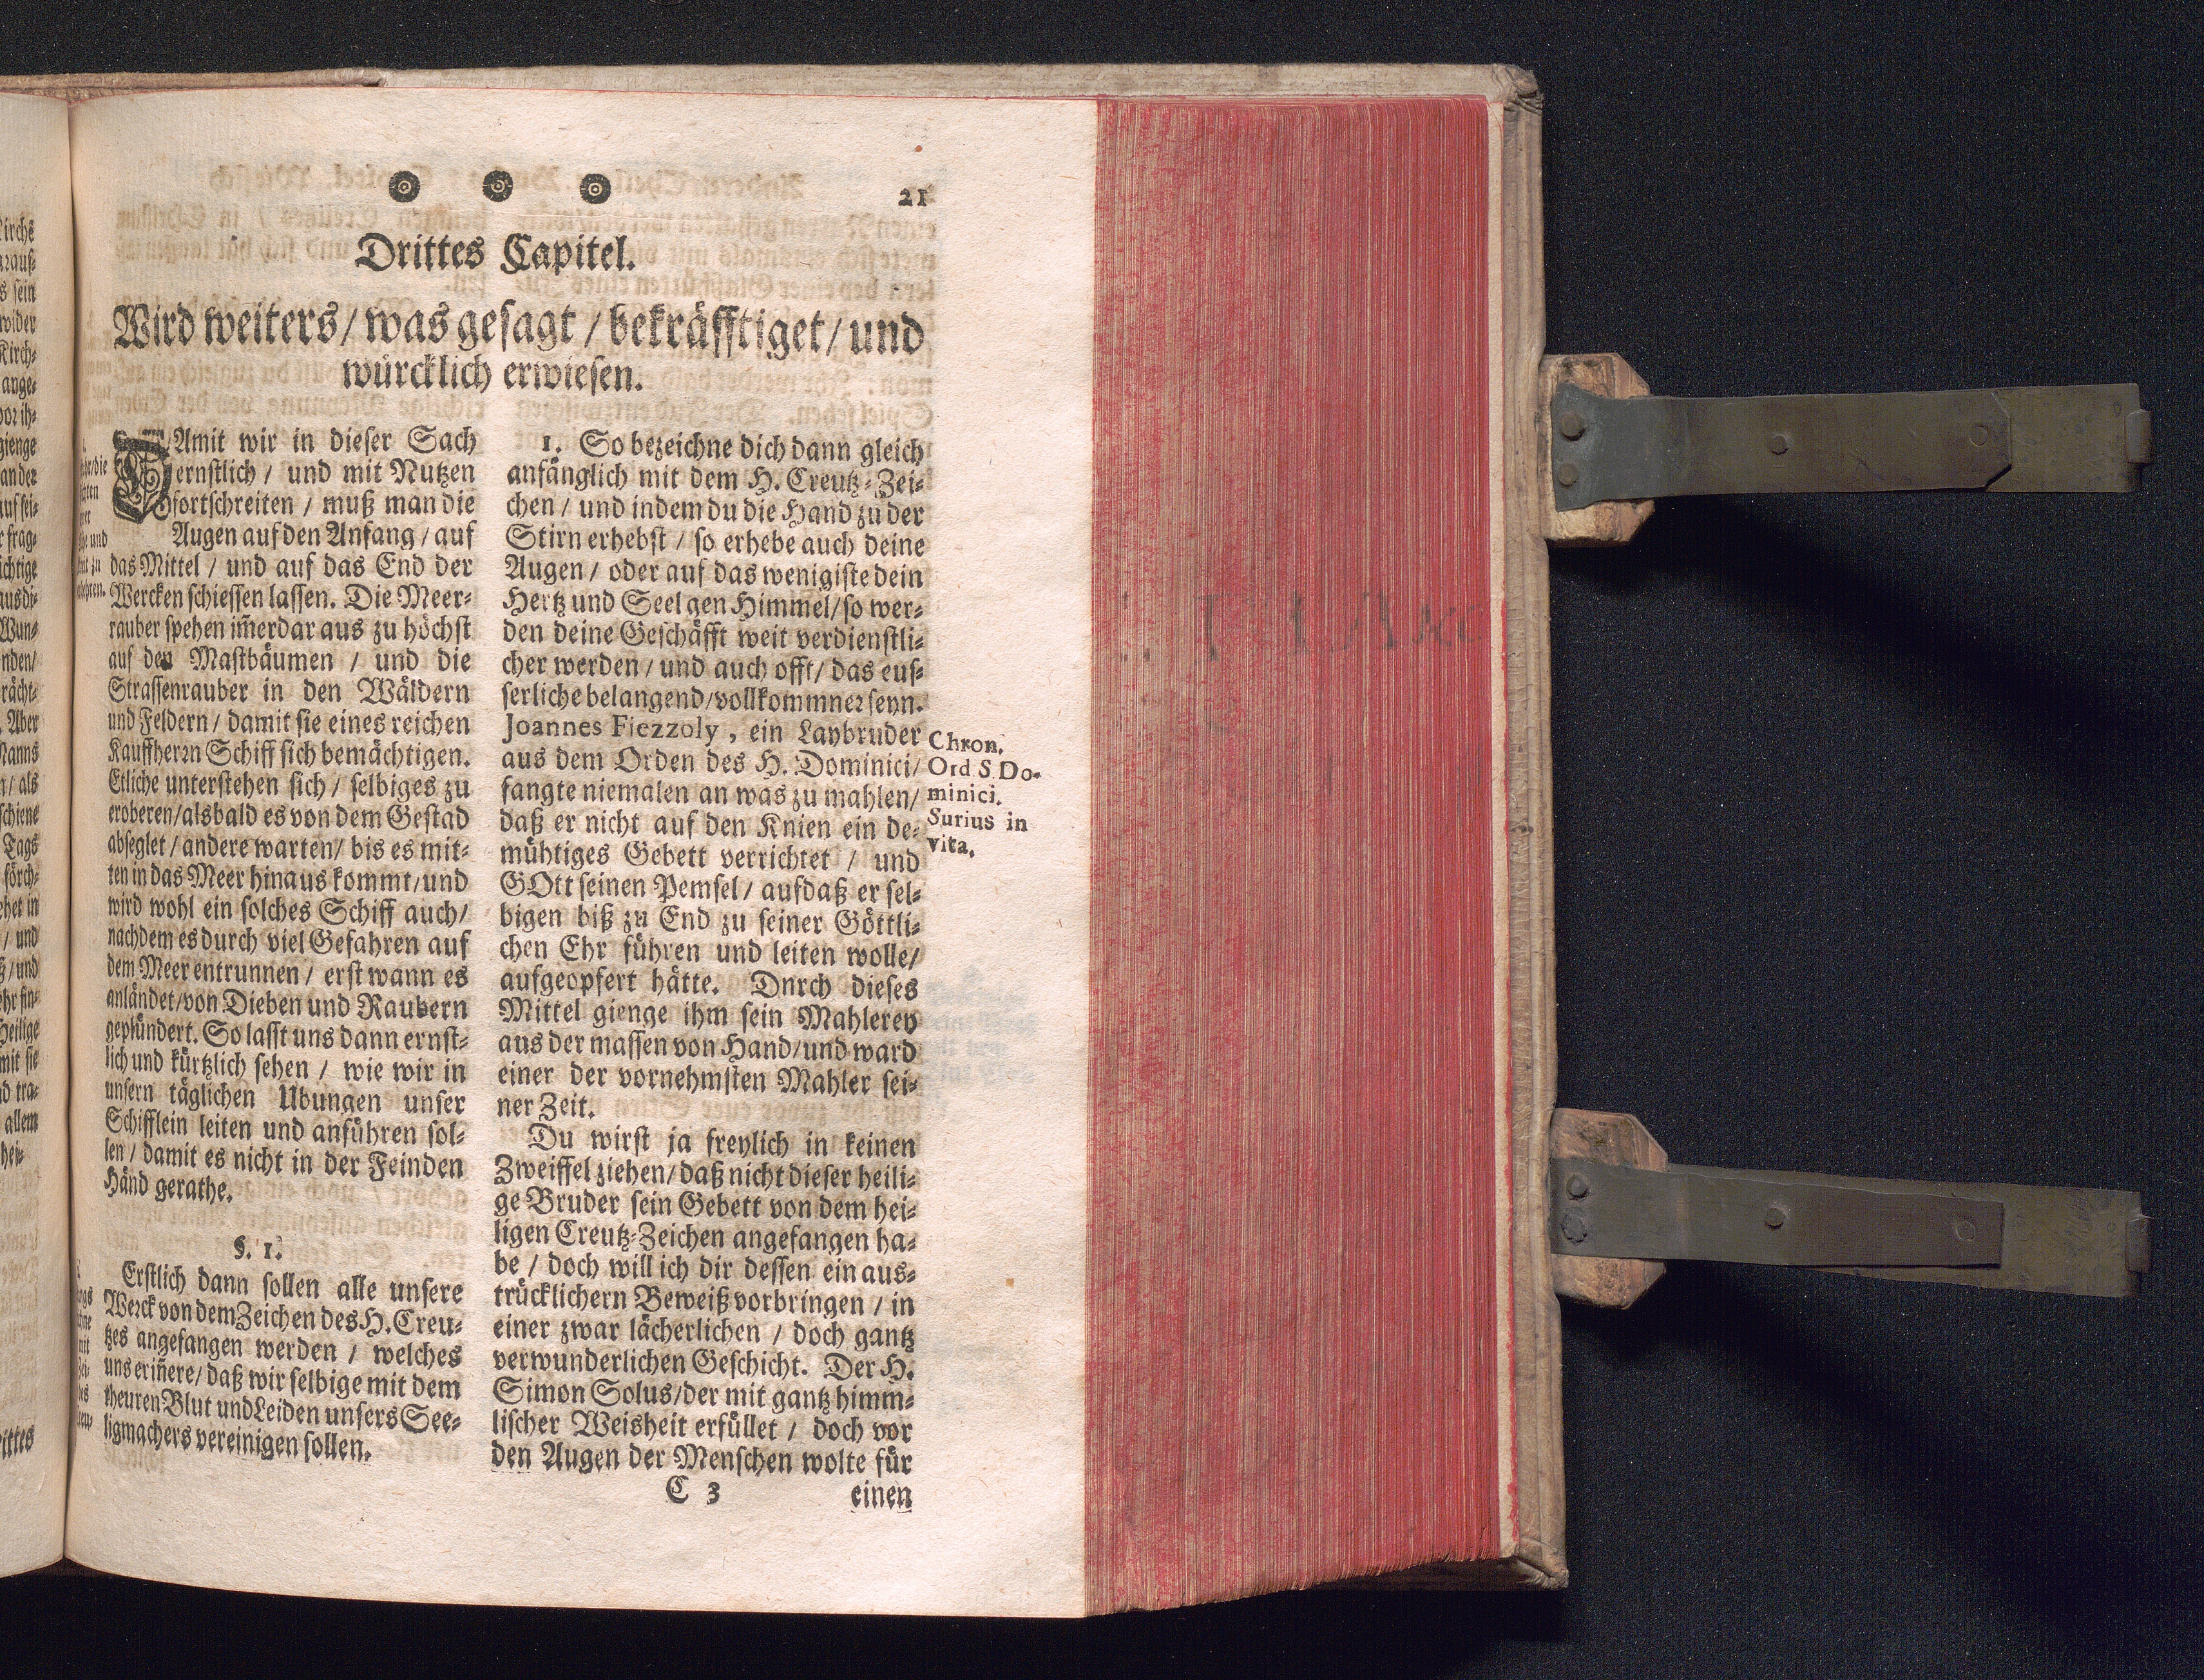 21
Drittes Capitel.
Wird weiters/ was gesagt / bekräfftiget/ und
würcklich erwiesen.
DAmit wir in dieser Sach
ernstlich / und mit Nutzen
fortschreiten / muß man die
Augen auf den Anfang / auf
das Mittel / und auf das End der
Wercken schiessen lassen. Die Meer-
rauber spehen im̃erdar aus zu höchst
auf den Mastbäumen / und die
Strassenrauber in den Wäldern
und Feldern / damit sie eines reichen
Kauffherꝛn Schiff sich bemächtigen.
Etliche unterstehen sich / selbiges zu
eroberen/alsbald es von dem Gestad
abseglet / andere warten/ bis es mit-
ten in das Meer hinaus kommt/und
wird wohl ein solches Schiff auch/
nachdem es durch viel Gefahren auf
dem Meer entrunnen / erst wann es
anländet/von Dieben und Raubern
geplündert. So lasst uns dann ernst-
lich und kürtzlich sehen / wie wir in
unsern täglichen Ubungen unser
Schifflein leiten und anführen sol-
len / damit es nicht in der Feinden
Händ gerathe.
§. 1.
Erstlich dann sollen alle unsere
Weꝛck von dem Zeichen des H. Creu-
tzes angefangen werden / welches
uns eriñere/ daß wir selbige mit dem
theuren Blut und Leiden unsers See-
ligmachers vereinigen sollen.
1. So bezeichne dich dann gleich
anfänglich mit dem H. Creutz-Zei-
chen / und indem du die Hand zu der
Stirn erhebst / so erhebe auch deine
Augen / oder auf das wenigiste dein
Hertz und Seel gen Himmel/so wer-
den deine Geschäfft weit verdienstli-
cher werden / und auch offt/ das eus-
serliche belangend/vollkommneꝛ seyn.
Joannes Fiezzoly, ein Laybruder
aus dem Orden des H. Dominici/
fangte niemalen an was zu mahlen/
daß er nicht auf den Knien ein de-
mühtiges Gebett verrichtet / und
GOtt seinen Pemsel / aufdaß er sel-
bigen biß zu End zu seiner Göttli-
chen Ehr führen und leiten wolle/
aufgeopfert hätte. Dnrch dieses
Mittel gienge ihm sein Mahlerey
aus der massen von Hand/und ward
einer der vornehmsten Mahler sei-
ner Zeit.
Du wirst ja freylich in keinen
Zweiffel ziehen/daß nicht dieser heili-
ge Bruder sein Gebett von dem hei-
ligen Creutz-Zeichen angefangen ha-
be / doch will ich dir dessen ein aus-
trücklichern Beweiß vorbringen / in
einer zwar lächerlichen / doch gantz
verwunderlichen Geschicht. Der H.
Simon Solus/der mit gantz himm-
lischer Weisheit erfüllet / doch vor
den Augen der Menschen wolte für
Chron.
Ord S. Do-
minici.
Surius in
vita.
C 3
einen